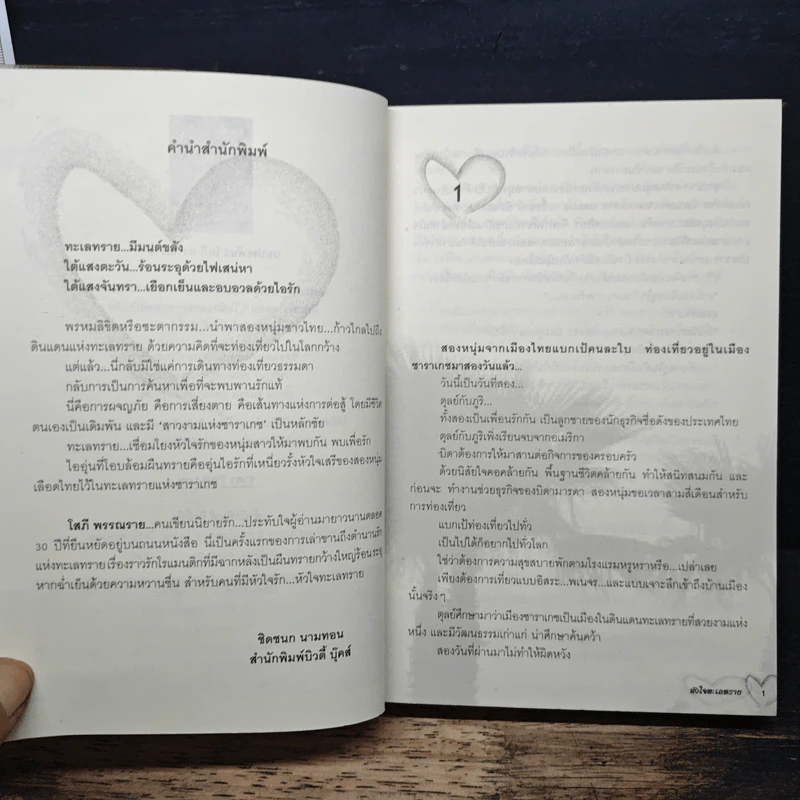 คำนำสำนักพิมพ์
ทะเลทราย...มีมนต์ขลัง
ใต้แสงตะวัน...ร้อนระอุด้วยไฟเสน่หา
ใต้แสงจันทรา...เยือกเย็นและอบอวลด้วยไอรัก
พรหมลิขิตหรือชะตากรรม...นำพาสองหนุ่มชาวไทย...ก้าวไกลไปถึง
ดินแดนแห่งทะเลทราย ด้วยความคิดที่จะท่องเที่ยวไปในโลกกว้าง
แต่แล้ว...นี่กลับมิใช่แค่การเดินทางท่องเที่ยวธรรมดา
กลับการเป็นการค้นหาเพื่อที่จะพบพานรักแท้
นี่คือการผจญภัย คือการเสี่ยงตาย คือเส้นทางแห่งการต่อสู้ โดยมีชีวิต
ตนเองเป็นเดิมพัน และมี 'สาวงามแห่งซาราเกซ' เป็นหลักชัย
ทะเลทราย...เชื่อมโยงหัวใจรักของหนุ่มสาวให้มาพบกัน พบเพื่อรัก
ไออุ่นที่โอบล้อมผืนทรายคืออุ่นไอรักที่เหนี่ยวรั้งหัวใจเสรีของสองหนุ่ม
เลือดไทยไว้ในทะเลทรายแห่งซาราเกซ
โสภี พรรณราย...คนเขียนนิยายรัก...ประทับใจผู้อ่านมายาวนานตลอด
30 ปีที่ยืนหยัดอยู่บนถนนหนังสือ นี่เป็นครั้งแรกของการเล่าขานถึงตำนานรัก
แห่งทะเลทรายเรื่องราวรักโรแมนติกที่มีฉากหลังเป็นผืนทรายกว้างใหญ่ร้อนระอุ
หากฉ่ำเย็นด้วยความหวานชื่น สำหรับคนที่มีหัวใจรัก...หัวใจทะเลทราย
ชิดชนก นามทอน
สำนักพิมพ์บิวตี้ บุ๊คส์
1
สองหนุ่มจากเมืองไทยแบกเป้คนละใบ ท่องเที่ยวอยู่ในเมือง
ซาราเกซมาสองวันแล้ว...
วันนี้เป็นวันที่สอง...
ตุลย์กับภูริ...
ทั้งสองเป็นเพื่อนรักกัน เป็นลูกชายของนักธุรกิจชื่อดังของประเทศไทย
ตุลย์กับภูริเพิ่งเรียนจบจากอเมริกา
บิดาต้องการให้มาสานต่อกิจการของครอบครัว
ด้วยนิสัยใจคอคล้ายกัน พื้นฐานชีวิตคล้ายกัน ทำให้สนิทสนมกัน และ
ก่อนจะ ทำงานช่วยธุรกิจของบิดามารดา สองหนุ่มขอเวลาสามสี่เดือนสำหรับ
การท่องเที่ยว
แบกเป้ท่องเที่ยวไปทั่ว
เป็นไปได้ก็อยากไปทั่วโลก
ใช่ว่าต้องการความสุขสบายพักตามโรงแรมหรูหราหรือ...เปล่าเลย
เพียงต้องการเที่ยวแบบอิสระ...พเนจร...และแบบเจาะลึกเข้าถึงบ้านเมือง
นั้นจริงๆ
ตุลย์ศึกษามาว่าเมืองซาราเกซเป็นเมืองในดินแดนทะเลทรายที่สวยงามแห่ง
หนึ่ง และมีวัฒนธรรมเก่าแก่ น่าศึกษาค้นคว้า
สองวันที่ผ่านมาไม่ทำให้ผิดหวัง
หัวใจทะเลทราย 1